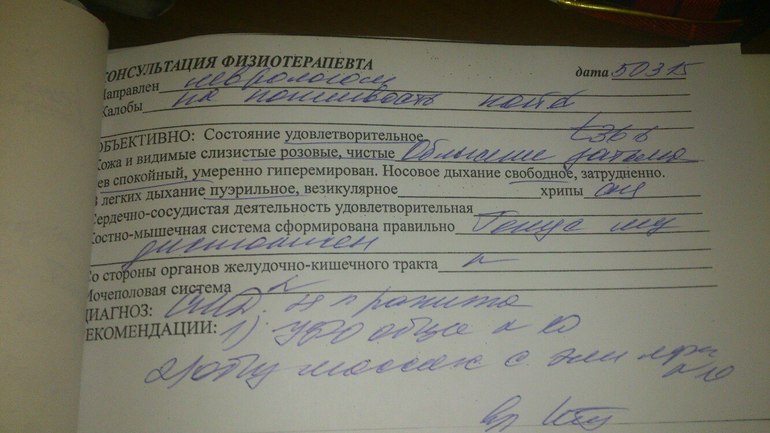 КОНСУЛЬТАЦИЯ ФИЗИОТЕРАПЕВТА
Направлен неврологом дата 50315
Жалобы на потливость
ОБЪЕКТИВНО: Состояние удовлетворительное t 36 6
Кожа и видимые слизистые розовые, чистые Облысение затылка
Зев спокойный, умеренно гиперемирован. Носовое дыхание свободное, затруднено.
В легких дыхание пуэрильное, везикулярное хрипы
Сердечно-сосудистая деятельность удовлетворительная
Костно-мышечная система сформирована правильно Тонус мы
дистоничен
Со стороны органов желудочно-кишечного тракта
Мочеполовая система
ДИАГНОЗ: рахита
РЕКОМЕНДАЦИИ: 1) УФО общее N 10
2) массаж с